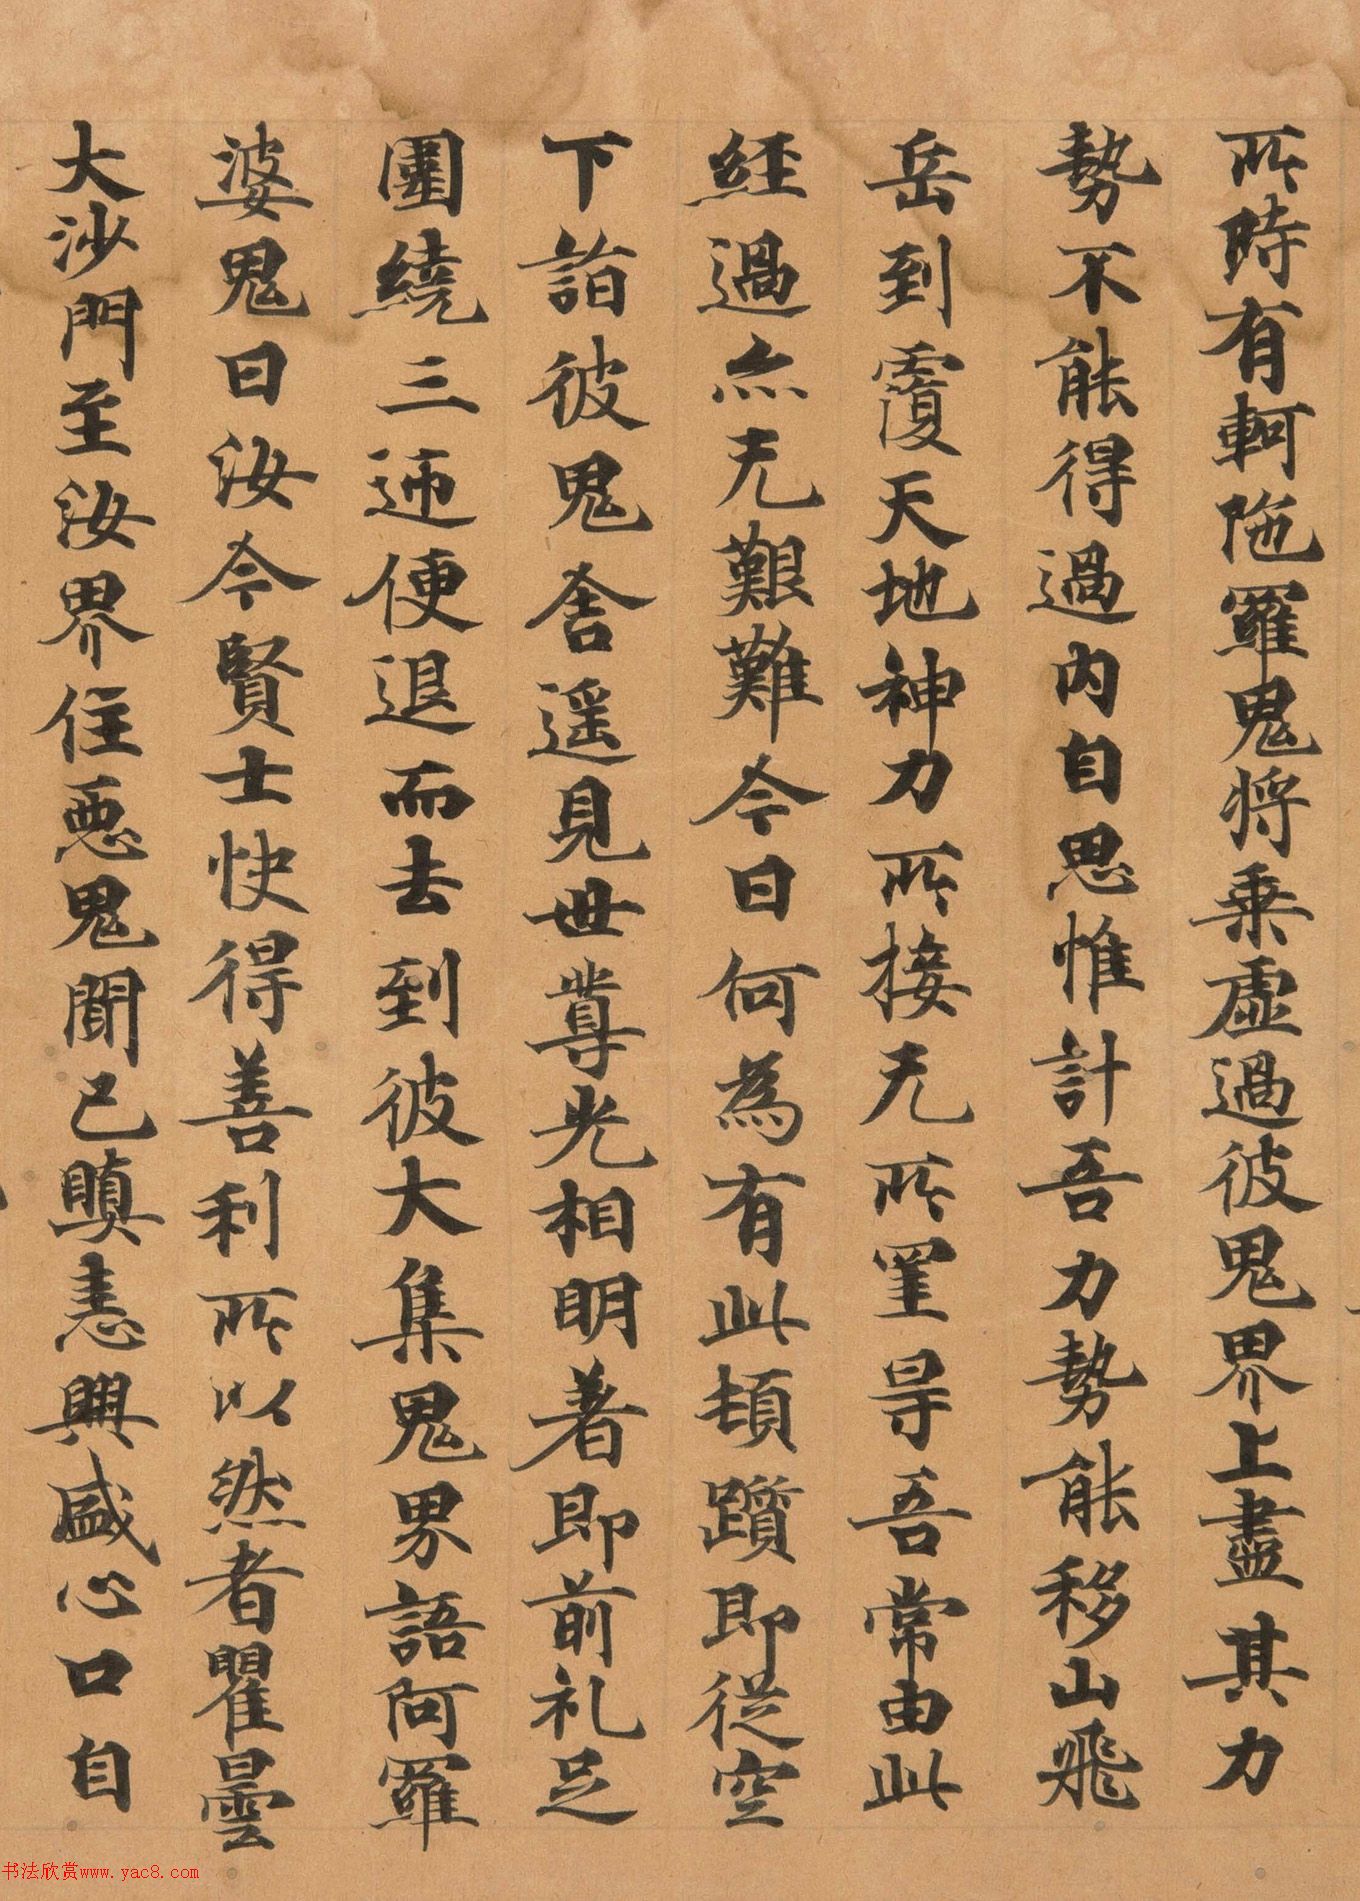 所時有軻陁羅鬼將乗虛過彼鬼界上盡其力
勢不能得過内自思惟計吾力勢能移山飛
岳到覆天地神力所接无所罣㝵吾常由此
經過亦无艱難今日何為有此頓躓即從空
下詣彼鬼舍遥見世尊光相明著即前礼足
圍繞三迊便退而去到彼大集鬼界語阿羅
婆鬼曰汝今賢士快得善利所以然者瞿曇
大沙門至汝界住惡鬼聞已瞋恚興盛心口自
书法欣赏www.yac8.com